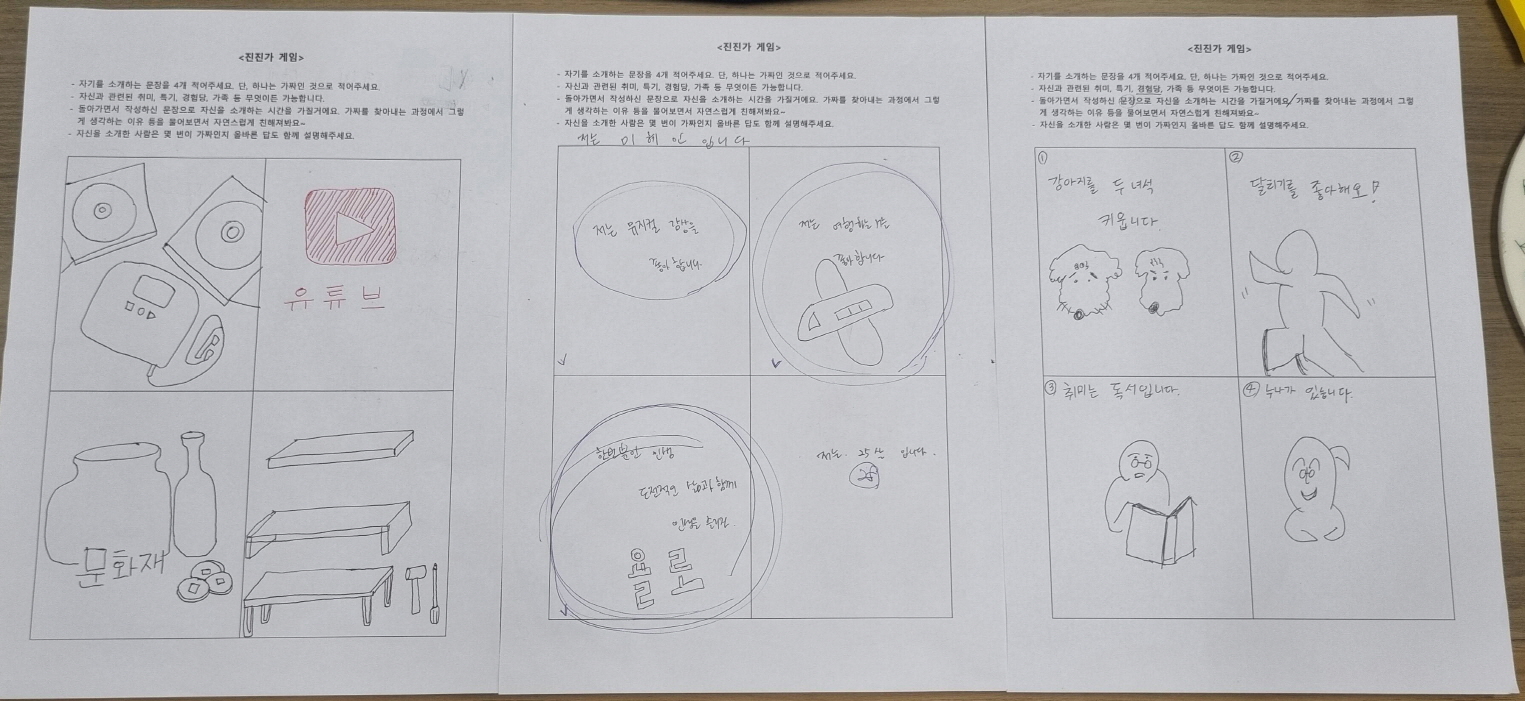 <진진가 게임>
- 자기를 소개하는 문장을 4개 적어주세요. 단, 하나는 가짜인 것으로 적어주세요.
- 자신과 관련된 취미, 특기, 경험담, 가족 등 무엇이든 가능합니다.
- 돌아가면서 작성하신 문장으로 자신을 소개하는 시간을 가질거에요. 가짜를 찾아내는 과정에서 그렇
게 생각하는 이유 등을 물어보면서 자연스럽게 친해져봐요~
- 자신을 소개한 사람은 몇 번이 가짜인지 올바른 답도 함께 설명해주세요.
유튜브
문화재
<진진가 게임>
- 자기를 소개하는 문장을 4개 적어주세요. 단, 하나는 가짜인 것으로 적어주세요.
- 자신과 관련된 취미, 특기, 경험담, 가족 등 무엇이든 가능합니다.
- 돌아가면서 작성하신 문장으로 자신을 소개하는 시간을 가질거에요. 가짜를 찾아내는 과정에서 그렇
게 생각하는 이유 등을 물어보면서 자연스럽게 친해져봐요~
- 자신을 소개한 사람은 몇 번이 가짜인지 올바른 답도 함께 설명해주세요.
저는 미혜안 입니다
저는 뮤지컬 감상을
좋아합니다.
저는 여행하는 것을
좋아합니다
한번뿐인 인생
도전적인 삶과 함께
인생을 즐기간
욜로
저는 25살 입니다.
28
<진진가 게임>
- 자기를 소개하는 문장을 4개 적어주세요. 단, 하나는 가짜인 것으로 적어주세요.
- 자신과 관련된 취미, 특기, 경험담, 가족 등 무엇이든 가능합니다.
- 돌아가면서 작성하신 문장으로 자신을 소개하는 시간을 가질거에요. 가짜를 찾아내는 과정에서 그렇
게 생각하는 이유 등을 물어보면서 자연스럽게 친해져봐요~
- 자신을 소개한 사람은 몇 번이 가짜인지 올바른 답도 함께 설명해주세요.
①
강아지를 두 녀석
키웁니다.
②
달리기를 좋아해요!
③ 취미는 독서입니다.
④ 누나가 있습니다.